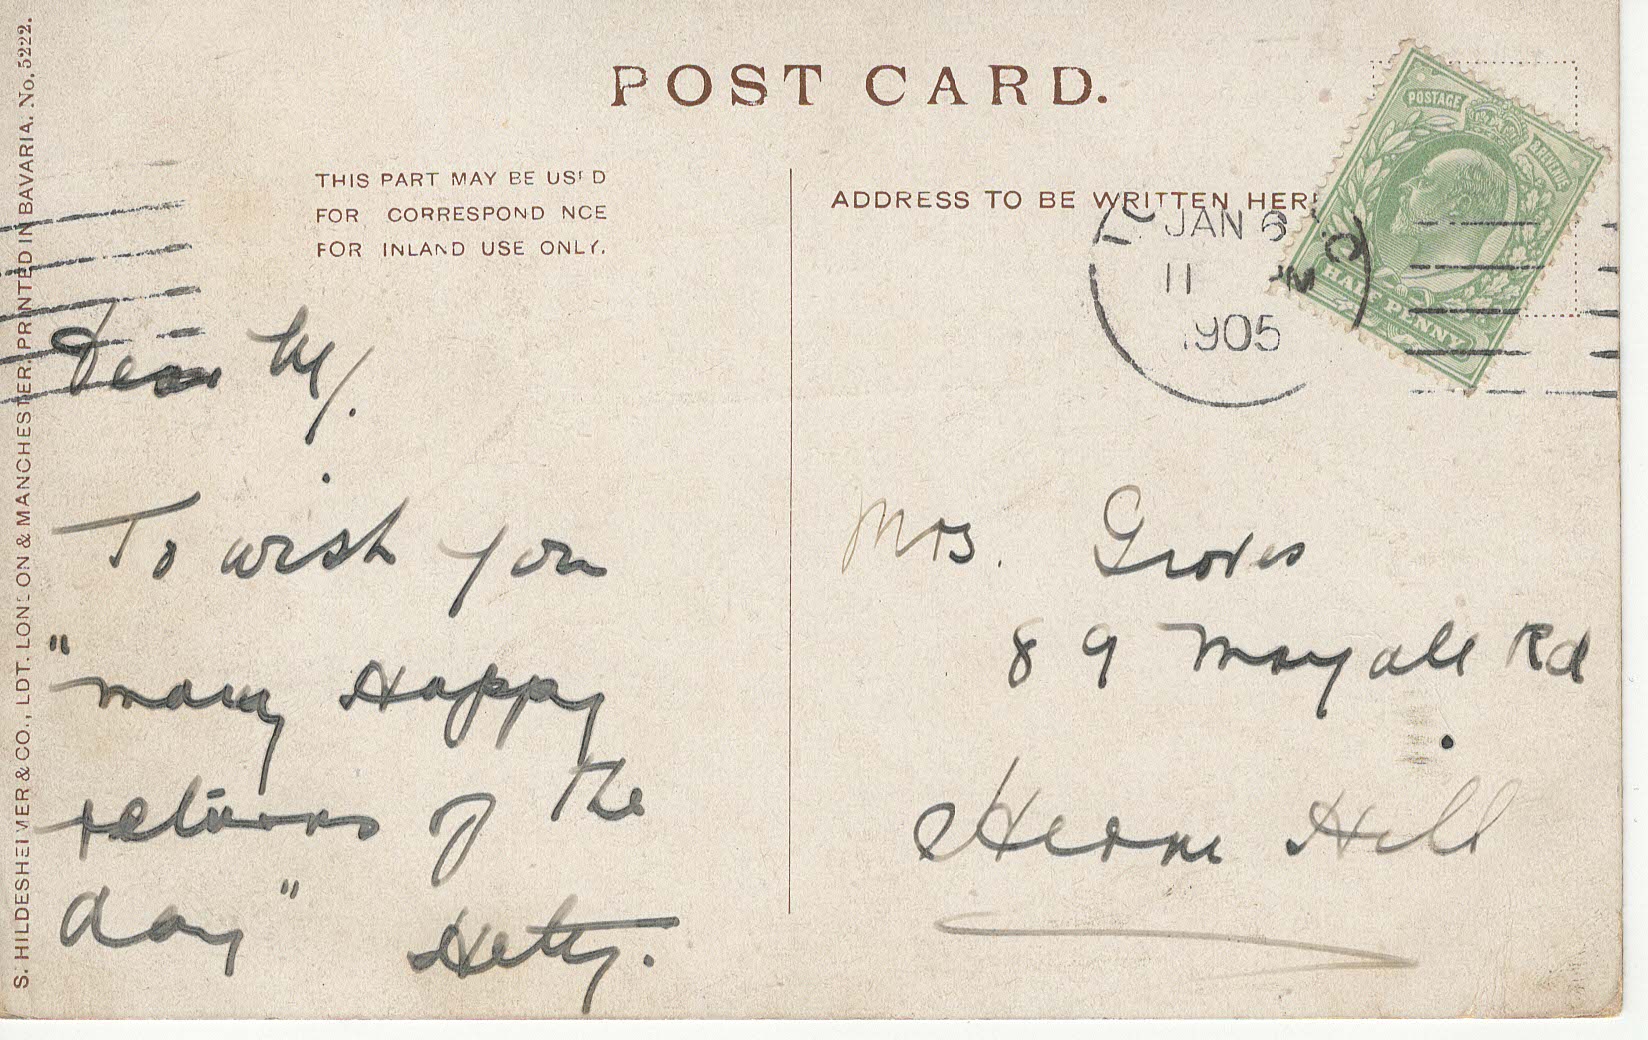 POST CARD.
THIS PART MAY BE USED
FOR CORRESPONDENCE
FOR INLAND USE ONLY.
ADDRESS TO BE WRITTEN HERE
POSTAGE
REVENUE
HALF PENNY
JAN 6
11
1905
Dear M/.
To wish you
"many Happy
returns of the
day" Hetty.
Mrs. Groves
89 Mayall Rd
Herne Hill
S. HILDESHEIMER & CO., LDT. LONDON & MANCHESTER. PRINTED IN BAVARIA. No. 5222.